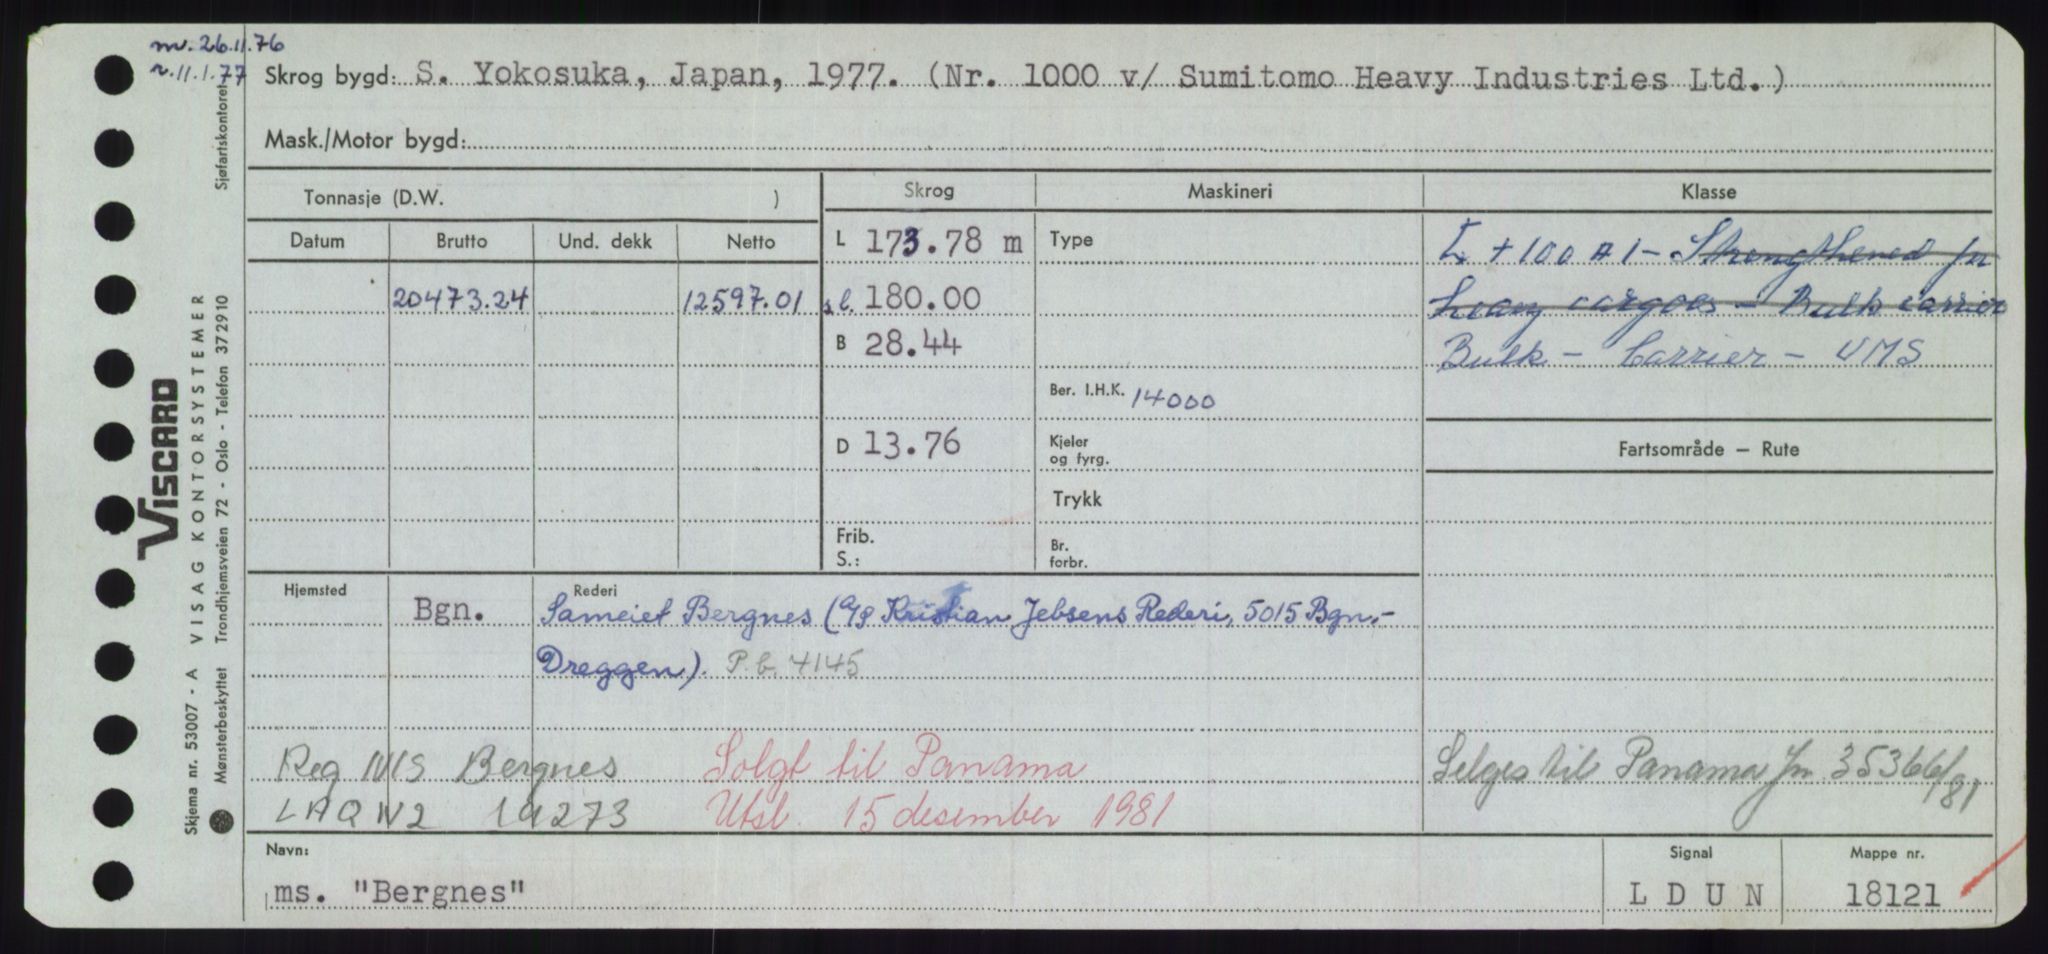 nv. 26.11.76
r. 11.1.77
Skrog bygd: S. Yokosuka, Japan, 1977. (Nr. 1000 v/ Sumitomo Heavy Industries Ltd.)
Mask./Motor bygd:
Tonnasje (D.W. )
Skrog
Maskineri
Klasse
Datum
Brutto
Und. dekk
Netto
L 173.78 m
Type
+ 100 A 1 - Strengthened for
20473.24
12597.01
s.l. 180.00
heavy cargoes - Bulk carrier
B 28.44
Bulk - Carrier - UMS
Ber. I.H.K. 14000
D 13.76
Kjeler
og fyrg.
Fartsområde — Rute
Trykk
Frib.
S.:
Br.
forbr.
Hjemsted
Rederi
Bgn.
Sameiet Bergnes (A/S Kristian Jebsens Rederi, 5015 Bgn.-
Dreggen). P.b. 4145
Reg M/S Bergnes
Solgt til Panama
Selges til Panama Jnr. 35366/81
LAQW2 19273
Utsl. 15 desember 1981
Navn:
ms. "Bergnes"
Signal
L D U N
Mappe nr.
18121
Skjema nr. 53007 - A VISAG KONTORSYSTEMER
VISCARD
Mønsterbeskyttet Trondhjemsveien 72 - Oslo - Telefon 372910 Sjøfartskontoret